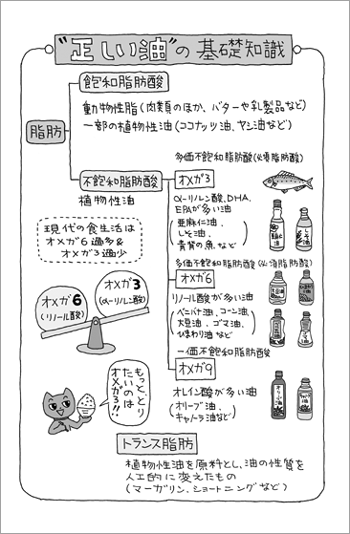 "正しい油"の基礎知識
脂肪
飽和脂肪酸
動物性脂(肉類のほか、バターや乳製品など)
一部の植物性油(ココナッツ油、ヤシ油など)
不飽和脂肪酸
植物性油
多価不飽和脂肪酸(必須脂肪酸)
オメガ3
α-リノレン酸、DHA、
EPAが多い油
(亜麻仁油、
しそ油、
青背の魚、など)
現代の食生活は
オメガ6過多&
オメガ3過少
オメガ6
(リノール酸)
オメガ3
(α-リノレン酸)
多価不飽和脂肪酸(必須脂肪酸)
オメガ6
リノール酸が多い油
(ベニバナ油、コーン油、
大豆油、ゴマ油、
ひまわり油など)
一価不飽和脂肪酸
オメガ9
オレイン酸が多い油
(オリーブ油、
キャノーラ油など)
もっととり
たいのは
オメガ3!!
トランス脂肪
植物性油を原料とし、油の性質を
人工的に変えたもの
(マーガリン、ショートニングなど)